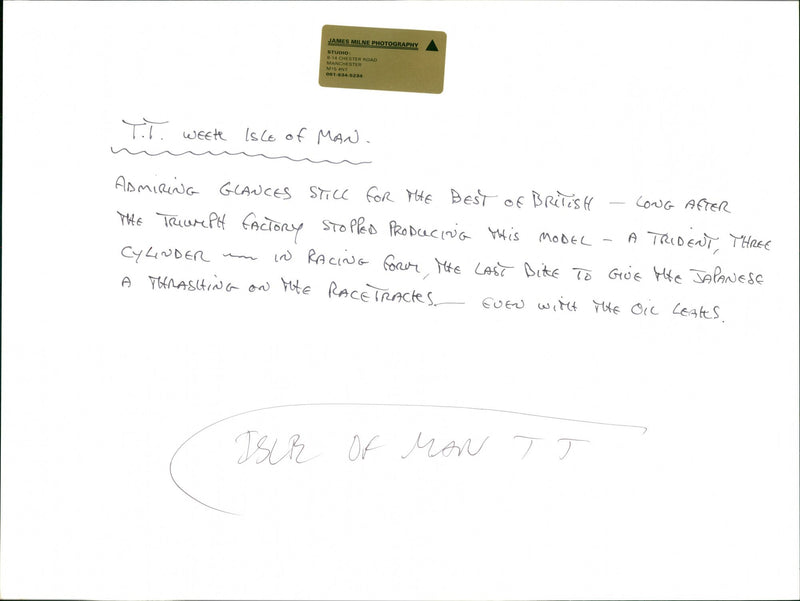 JAMES MILNE PHOTOGRAPHY
STUDIO:
8-14 CHESTER ROAD
MANCHESTER
M15 4NT
061-834-5234
T.T. WEEK ISLE OF MAN.
ADMIRING GLANCES STILL FOR THE BEST OF BRITISH — LONG AFTER
THE TRIUMPH FACTORY STOPPED PRODUCING THIS MODEL – A TRIDENT, THREE
CYLINDER — IN RACING FORM, THE LAST BIKE TO GIVE THE JAPANESE
A THRASHING ON THE RACETRACKS — EVEN WITH THE OIL LEAKS.
ISLE OF MAN T T